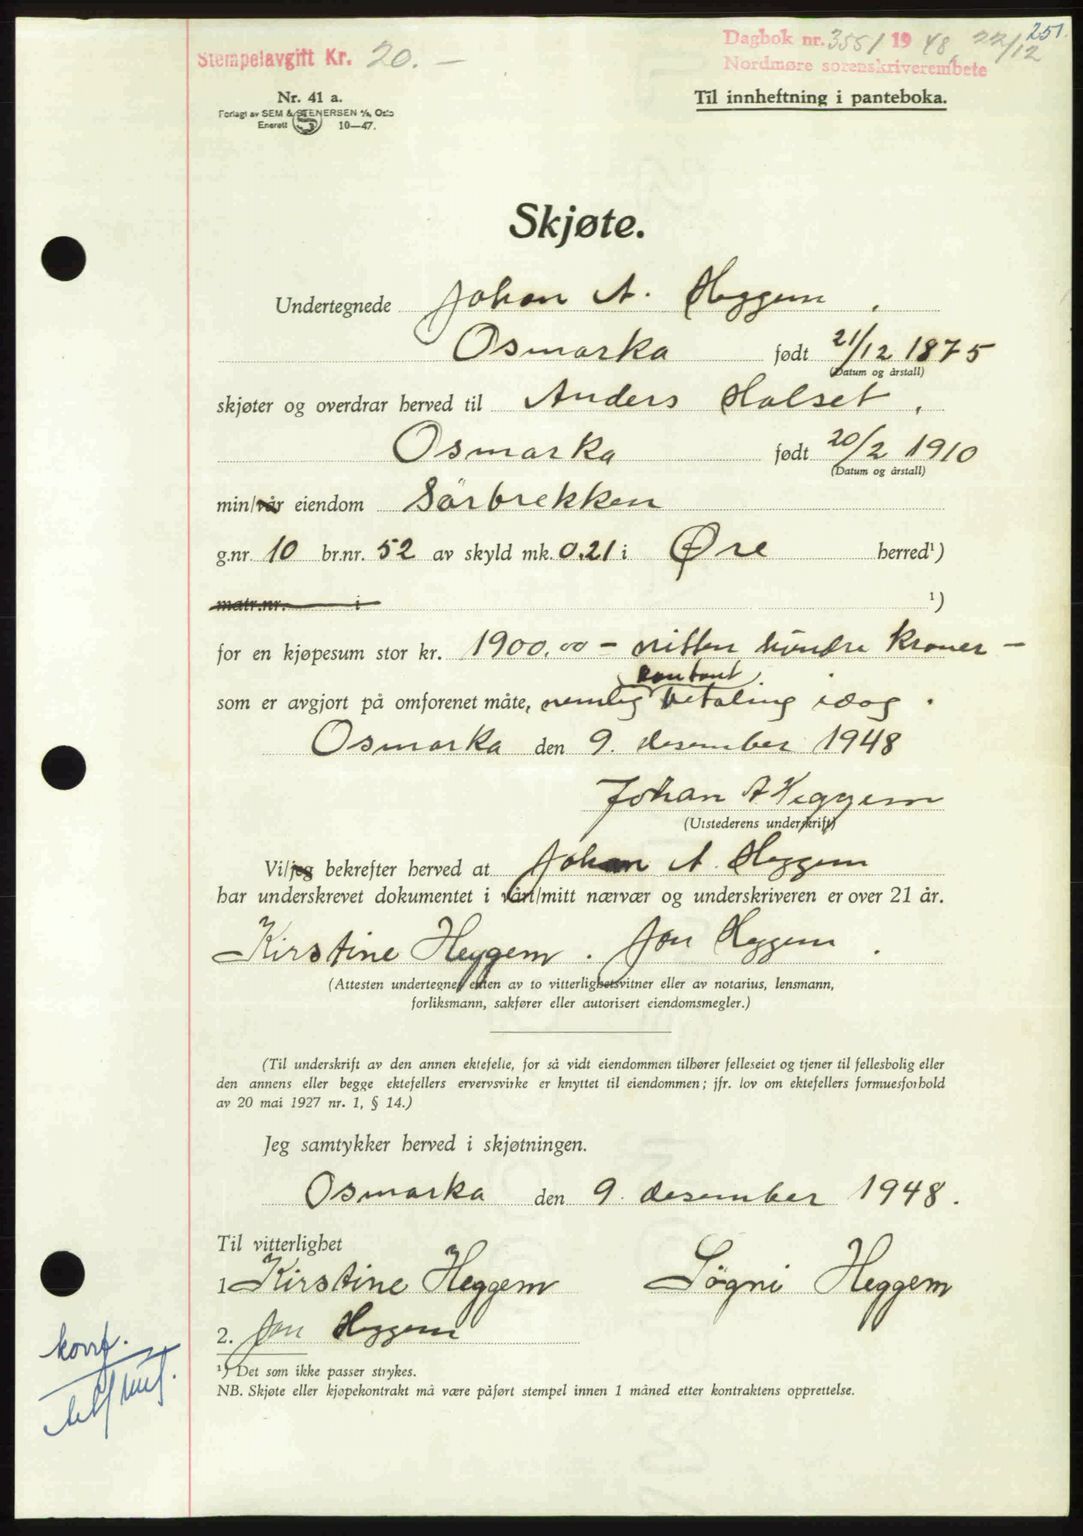 251.
Stempelavgift Kr. 20. —
Dagbok nr. 3551 1948, 22/12
Nordmøre sorenskriverembete
Nr. 41 a.
Forlagt av SEM & STENERSEN A/S, Oslo
Enerett 10—47.
Til innheftning i panteboka.
Skjøte.
Undertegnede Johan A. Heggem,
Osmarka født 21/12 1875
(Datum og årstall)
skjøter og overdrar herved til Anders Halset,
Osmarka født 20/2 1910
(Datum og årstall)
min/vår eiendom Sørbrekken
g.nr. 10 br.nr. 52 av skyld mk. 0.21 i Øre herred¹)
matr.nr. i ¹)
for en kjøpesum stor kr. 1900,00 — nitten hundre kroner —
kontant
som er avgjort på omforenet måte, nemlig betaling idag.
Osmarka den 9. desember 1948
Johan A Heggem
(Utstederens underskrift)
Vi/jeg bekrefter herved at Johan A. Heggem
har underskrevet dokumentet i vårt/mitt nærvær og underskriveren er over 21 år.
Kirstine Heggem. Jon Heggem.
(Attesten undertegnes enten av to vitterlighetsvitner eller av notarius, lensmann,
forliksmann, sakfører eller autorisert eiendomsmegler.)
(Til underskrift av den annen ektefelle, for så vidt eiendommen tilhører felleseiet og tjener til fellesbolig eller
den annens eller begge ektefellers ervervsvirke er knyttet til eiendommen; jfr. lov om ektefellers formuesforhold
av 20 mai 1927 nr. 1, § 14.)
Jeg samtykker herved i skjøtningen.
Osmarka den 9. desember 1948.
Til vitterlighet
1 Kirstine Heggem Søgni Heggem
2. Jon Heggem
korrf.
¹) Det som ikke passer strykes.
NB. Skjøte eller kjøpekontrakt må være påført stempel innen 1 måned etter kontraktens opprettelse.